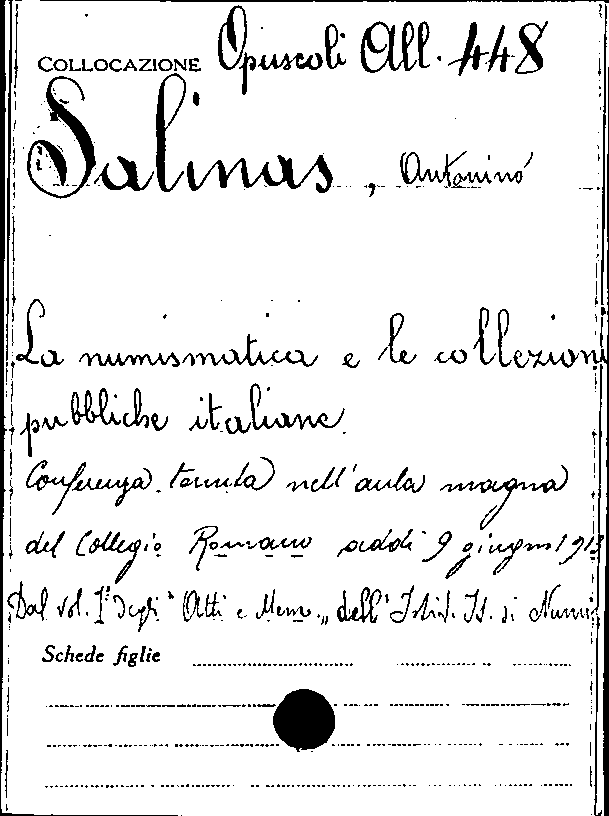 COLLOCAZIONE Opuscoli All. 448
Salinas, Antonino
La numismatica e le collezioni
pubbliche italiane.
Conferenza tenuta nell'aula magna
del Collegio Romano addì 9 giugno 1913
Dal vol. I° degli "Atti e Mem.„ dell'Istit. It. di Numis
Schede figlie